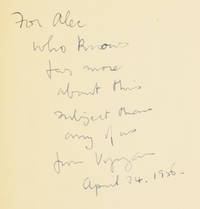 For Alec
who knows
far more
about this
subject than
any of us
from Vyvyan
April 24. 1956.